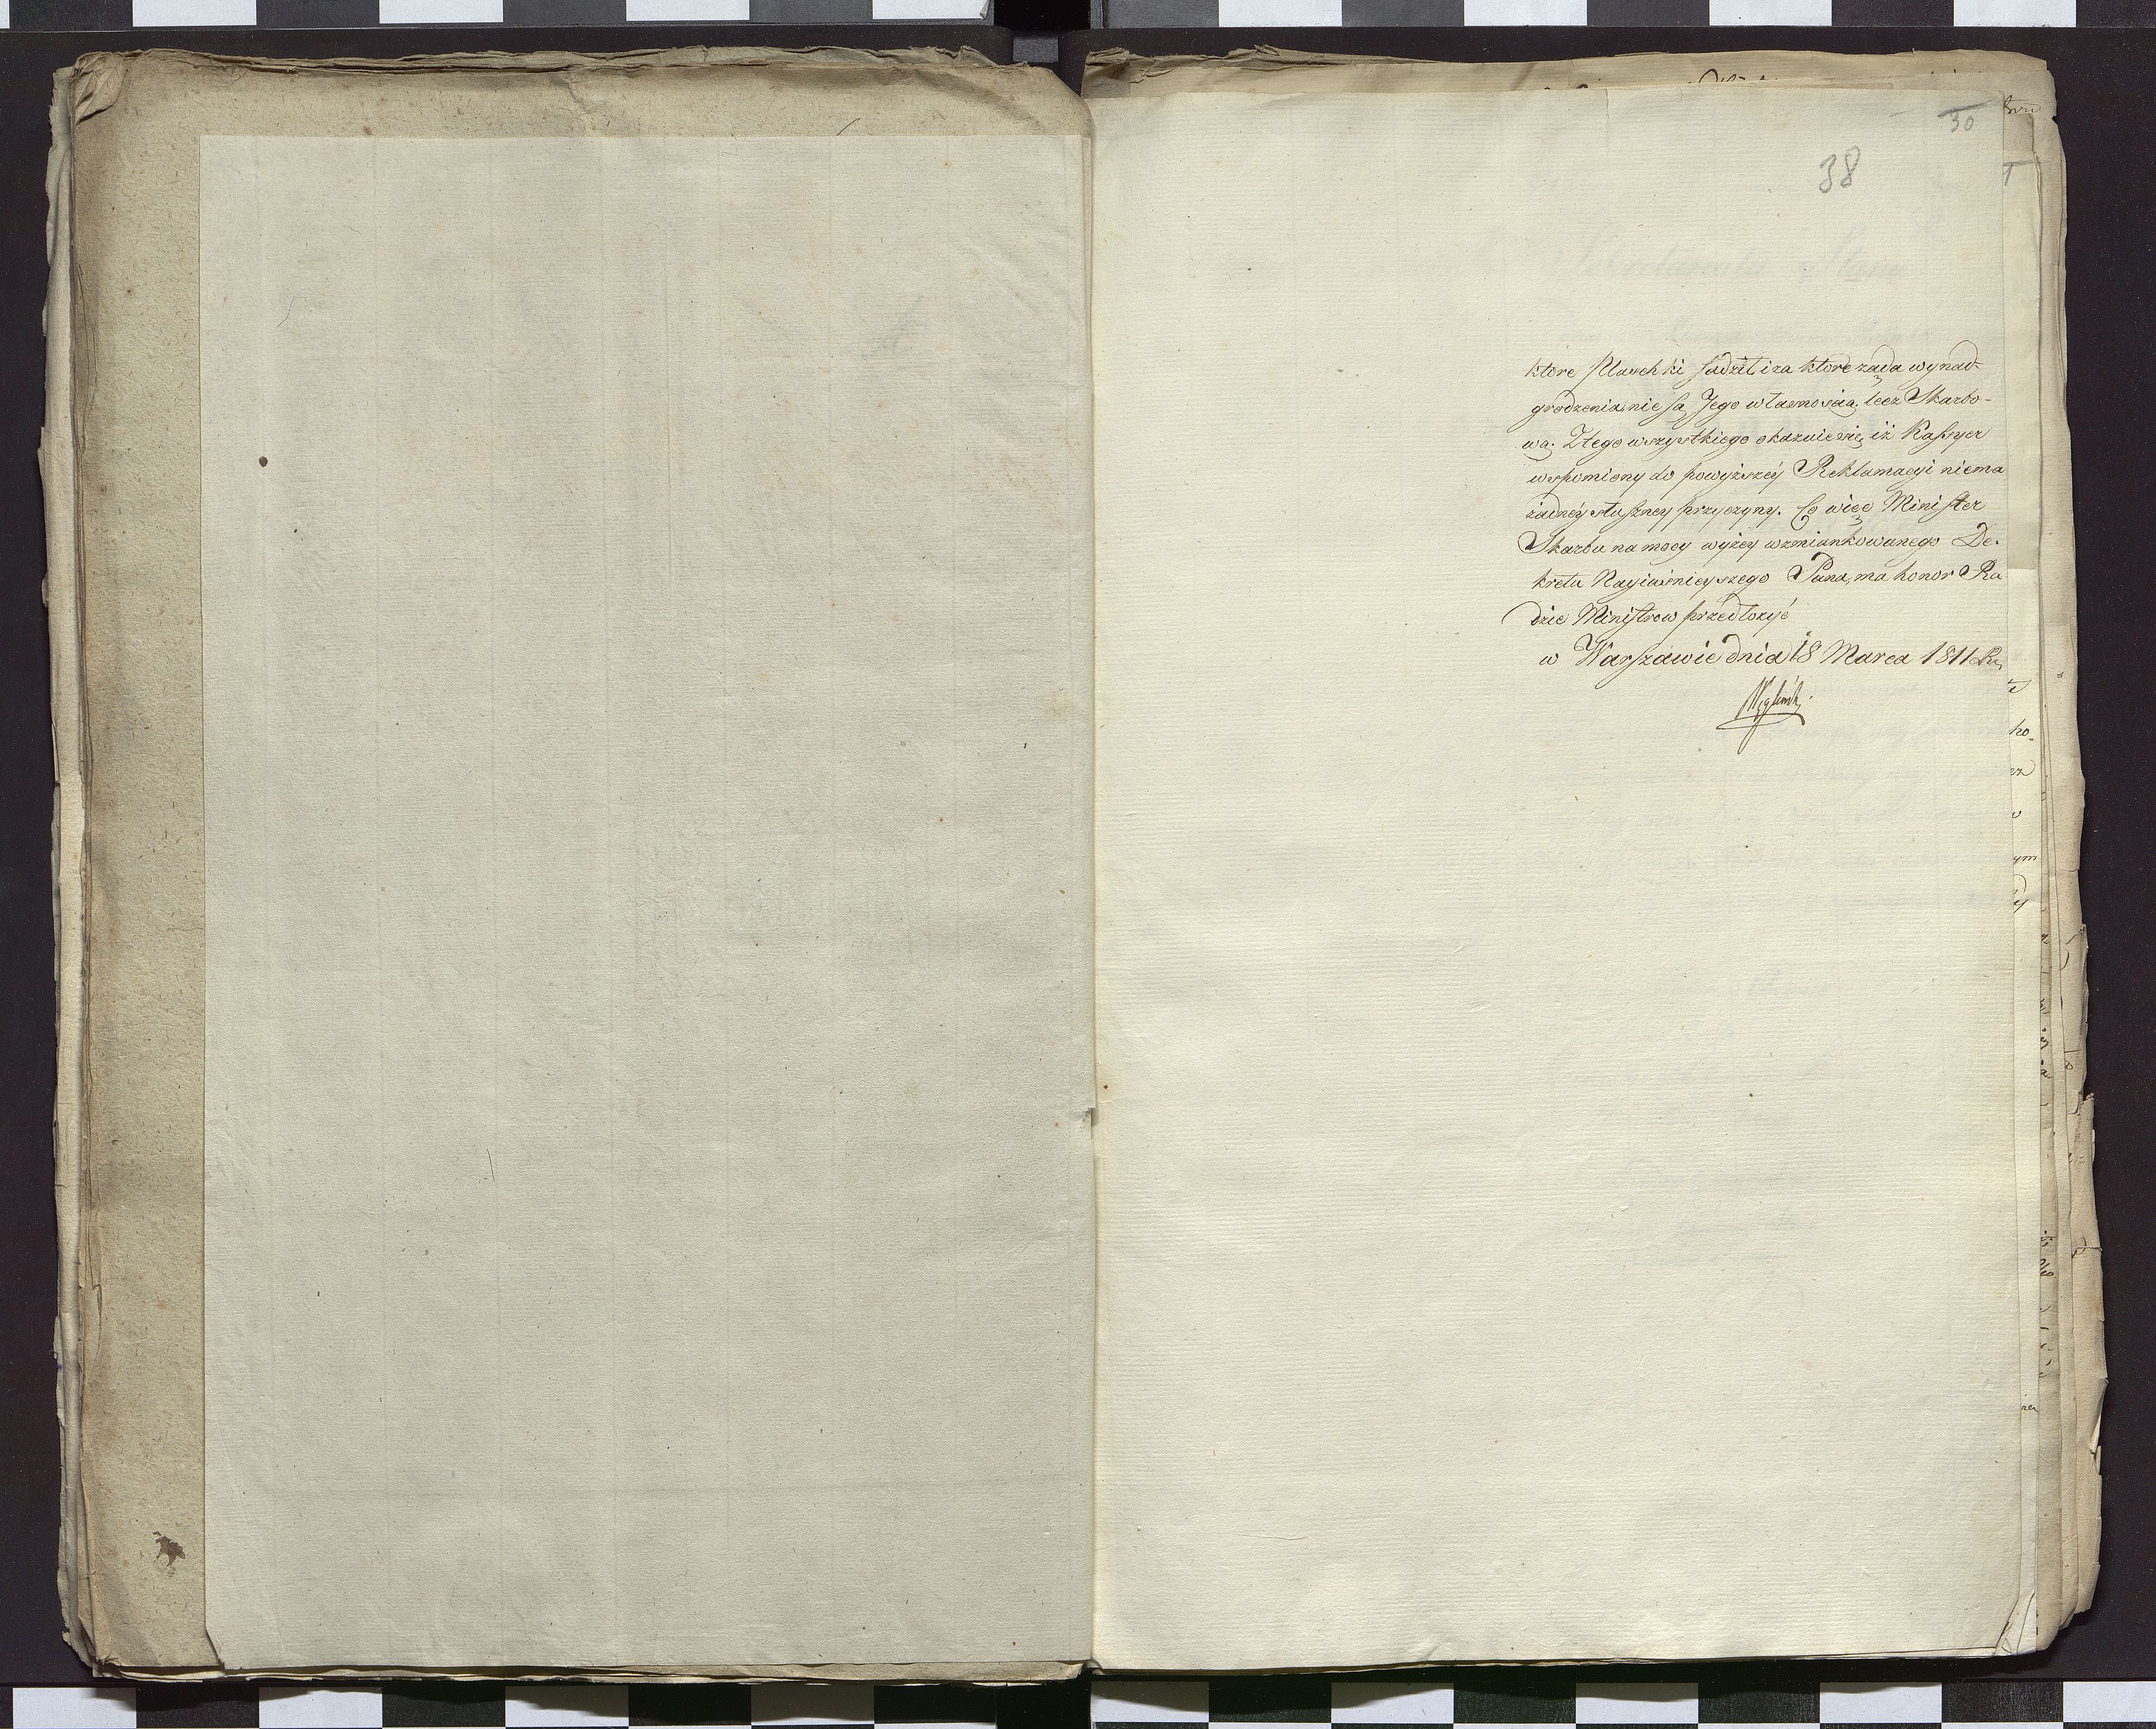 30
38
które Plaschki sadził i za które żąda wynad-
grodzenia, nie są Jego własnością, lecz Skarbo-
wą. Z tego wszystkiego okazuie się, iż Kassyer
wspomiony do powyższéy Reklamacyi niema
żadnéy słuszney przyczyny. Co więc Minister
Skarbu na mocy wyżey wzmiankowanego De-
kretu Nayiaśnieyszego Pana, ma honor Ra
dzie Ministrow przedłożyć
w Warszawie dnia 18 Marca 1811 Ru
Węgleński